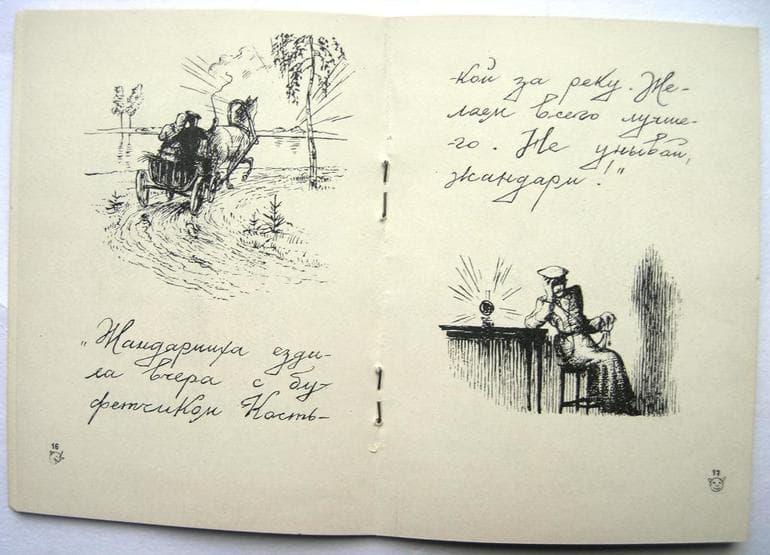 „Жандариха езди-
ла вчера с бу-
фетчиком Кость-
16
-кой за реку. Же-
лаем всего лучше-
-го. Не унывай,
жандарм!"
17